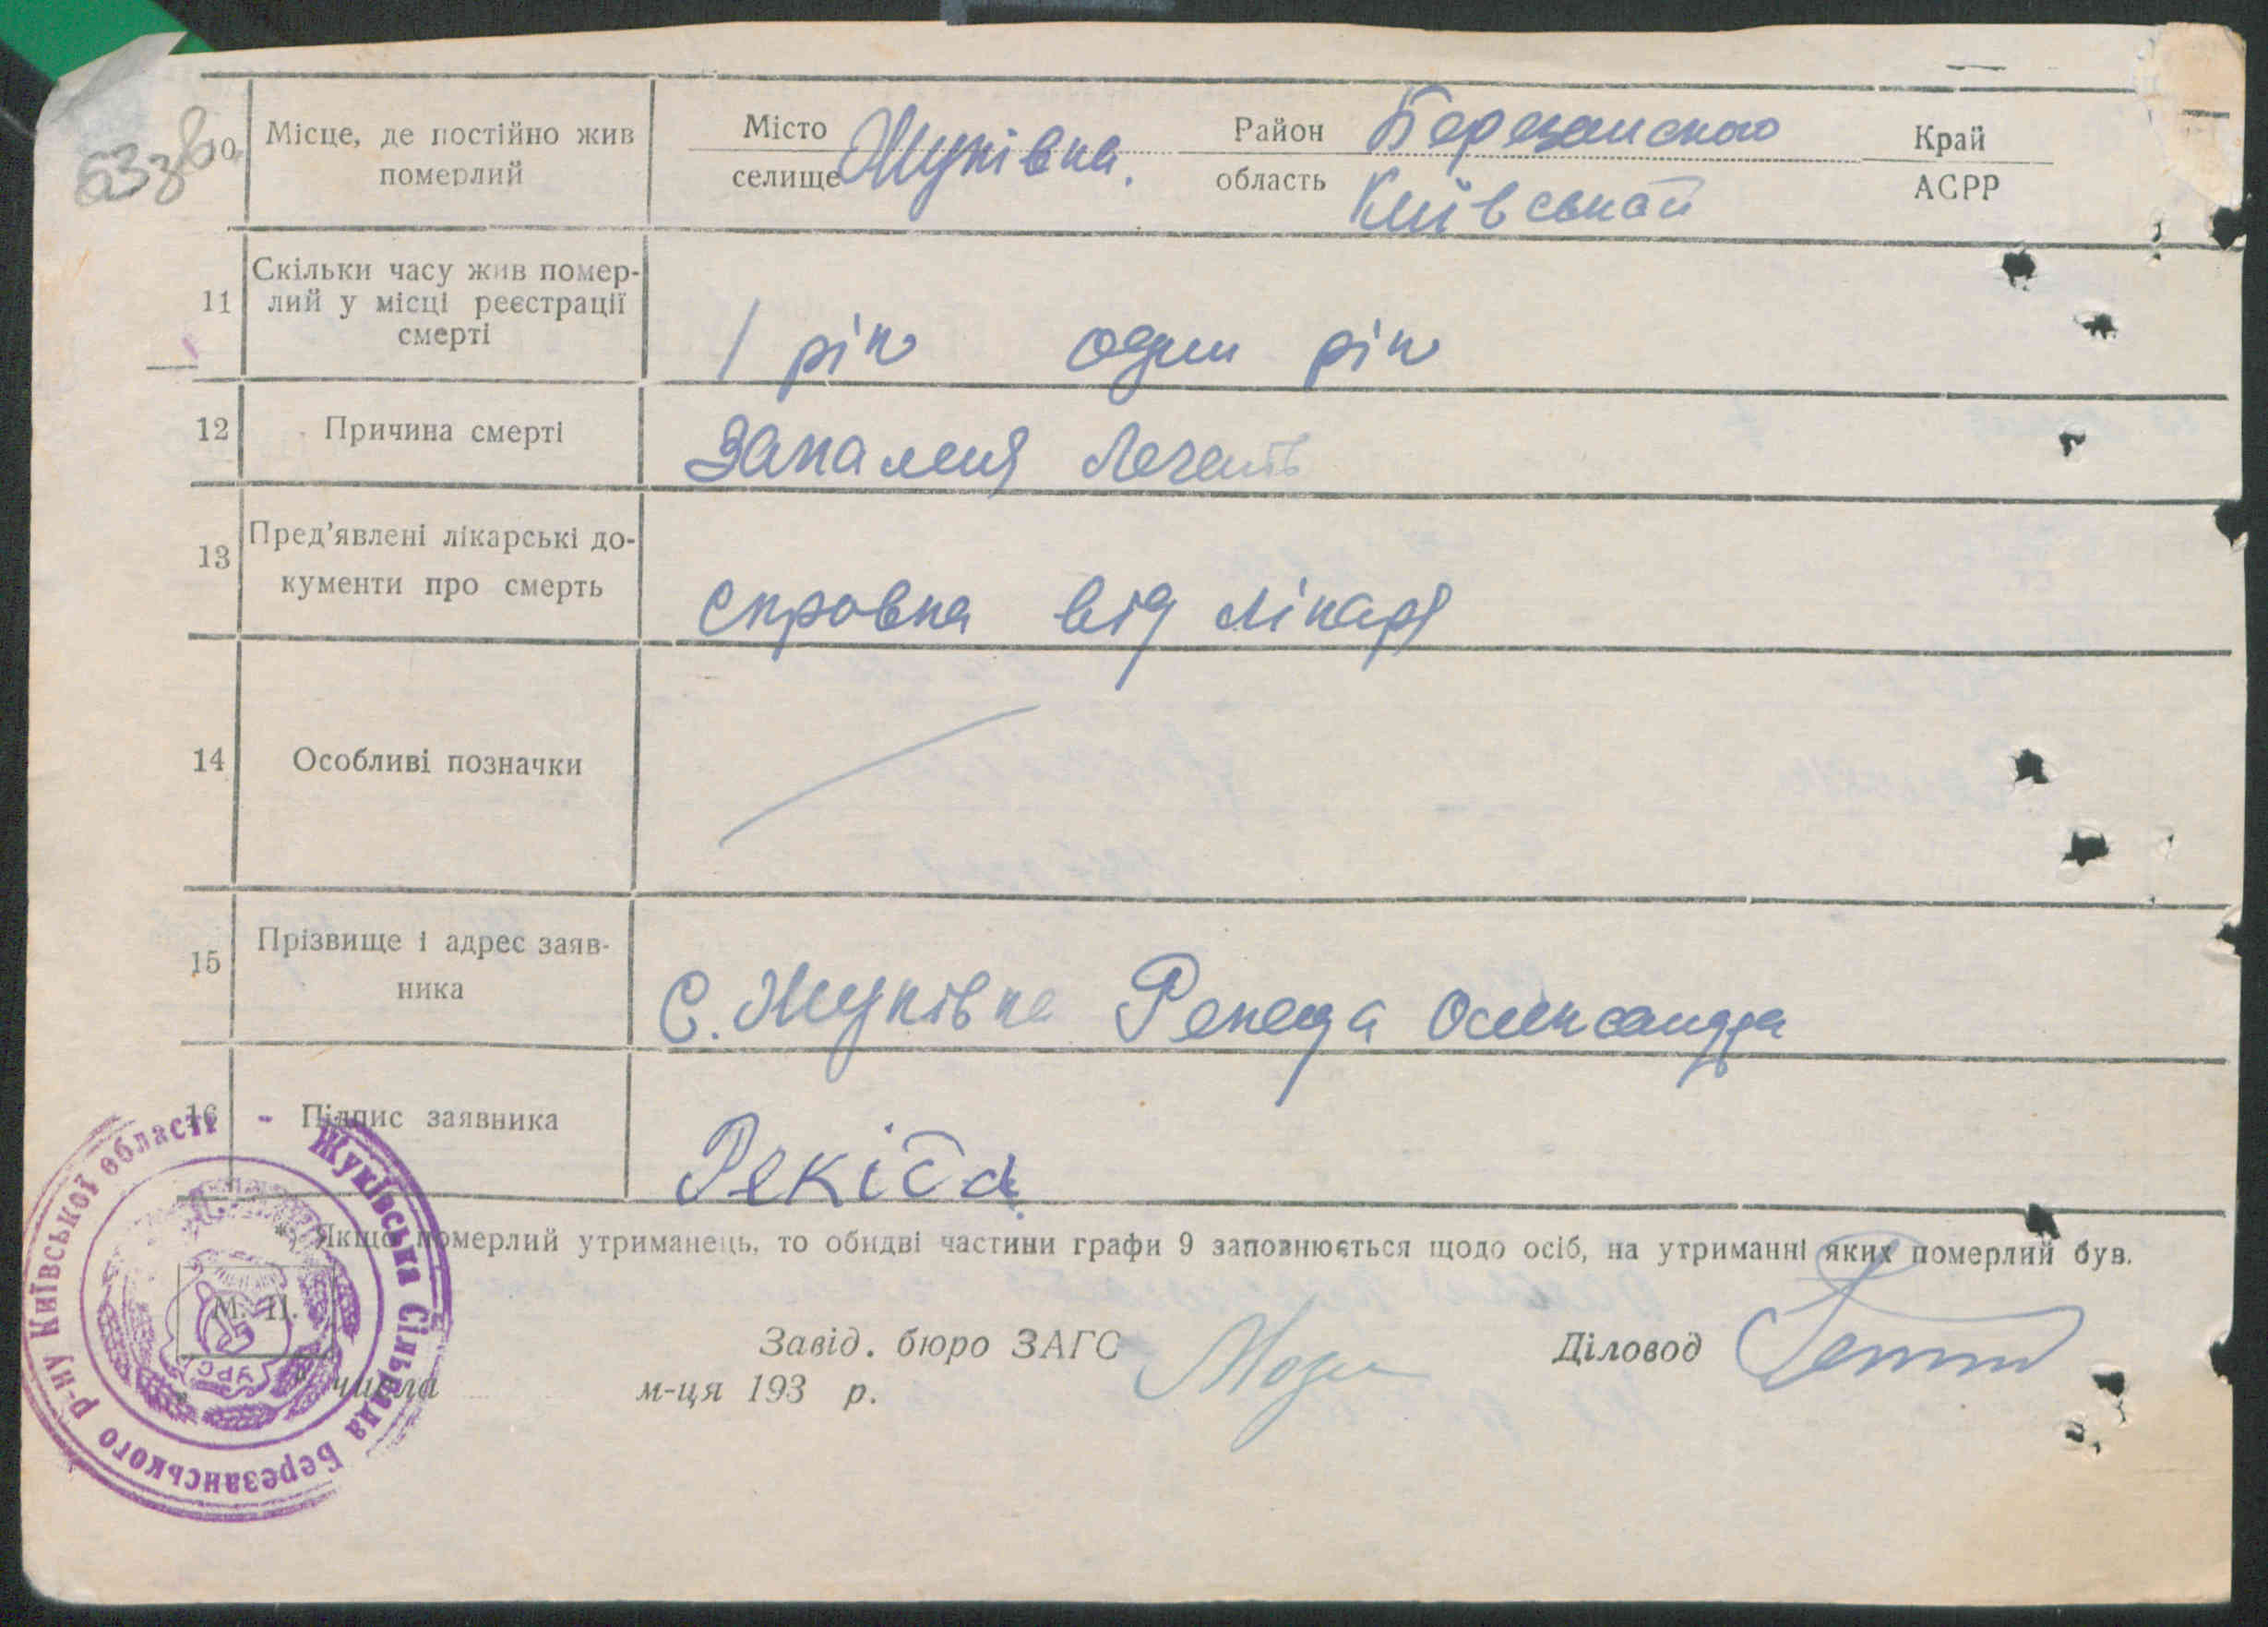 63зв
10 Місце, де постійно жив померлий
Місто селище Жуківка. Район Березанского область Київськой Край АСРР
11 Скільки часу жив помер-
лий у місці реєстрації
смерті
1 рік один рік
12 Причина смерті
Запаленя Легень
13 Пред'явлені лікарські до-
кументи про смерть
справка від лікаря
14 Особливі позначки
15 Прізвище і адрес заяв-
ника
С. Жуківка Рекеда Олександра
16 Підпис заявника
Рекіда
*) Якщо померлий утриманець, то обидві частини графи 9 заповнюється щодо осіб, на утриманні яких померлий був.
М. П.
Завід. бюро ЗАГС
Діловод
" " числа м-ця 193 р.
Жуківська Сільрада Березанського р-ну Київської області -
УРСР